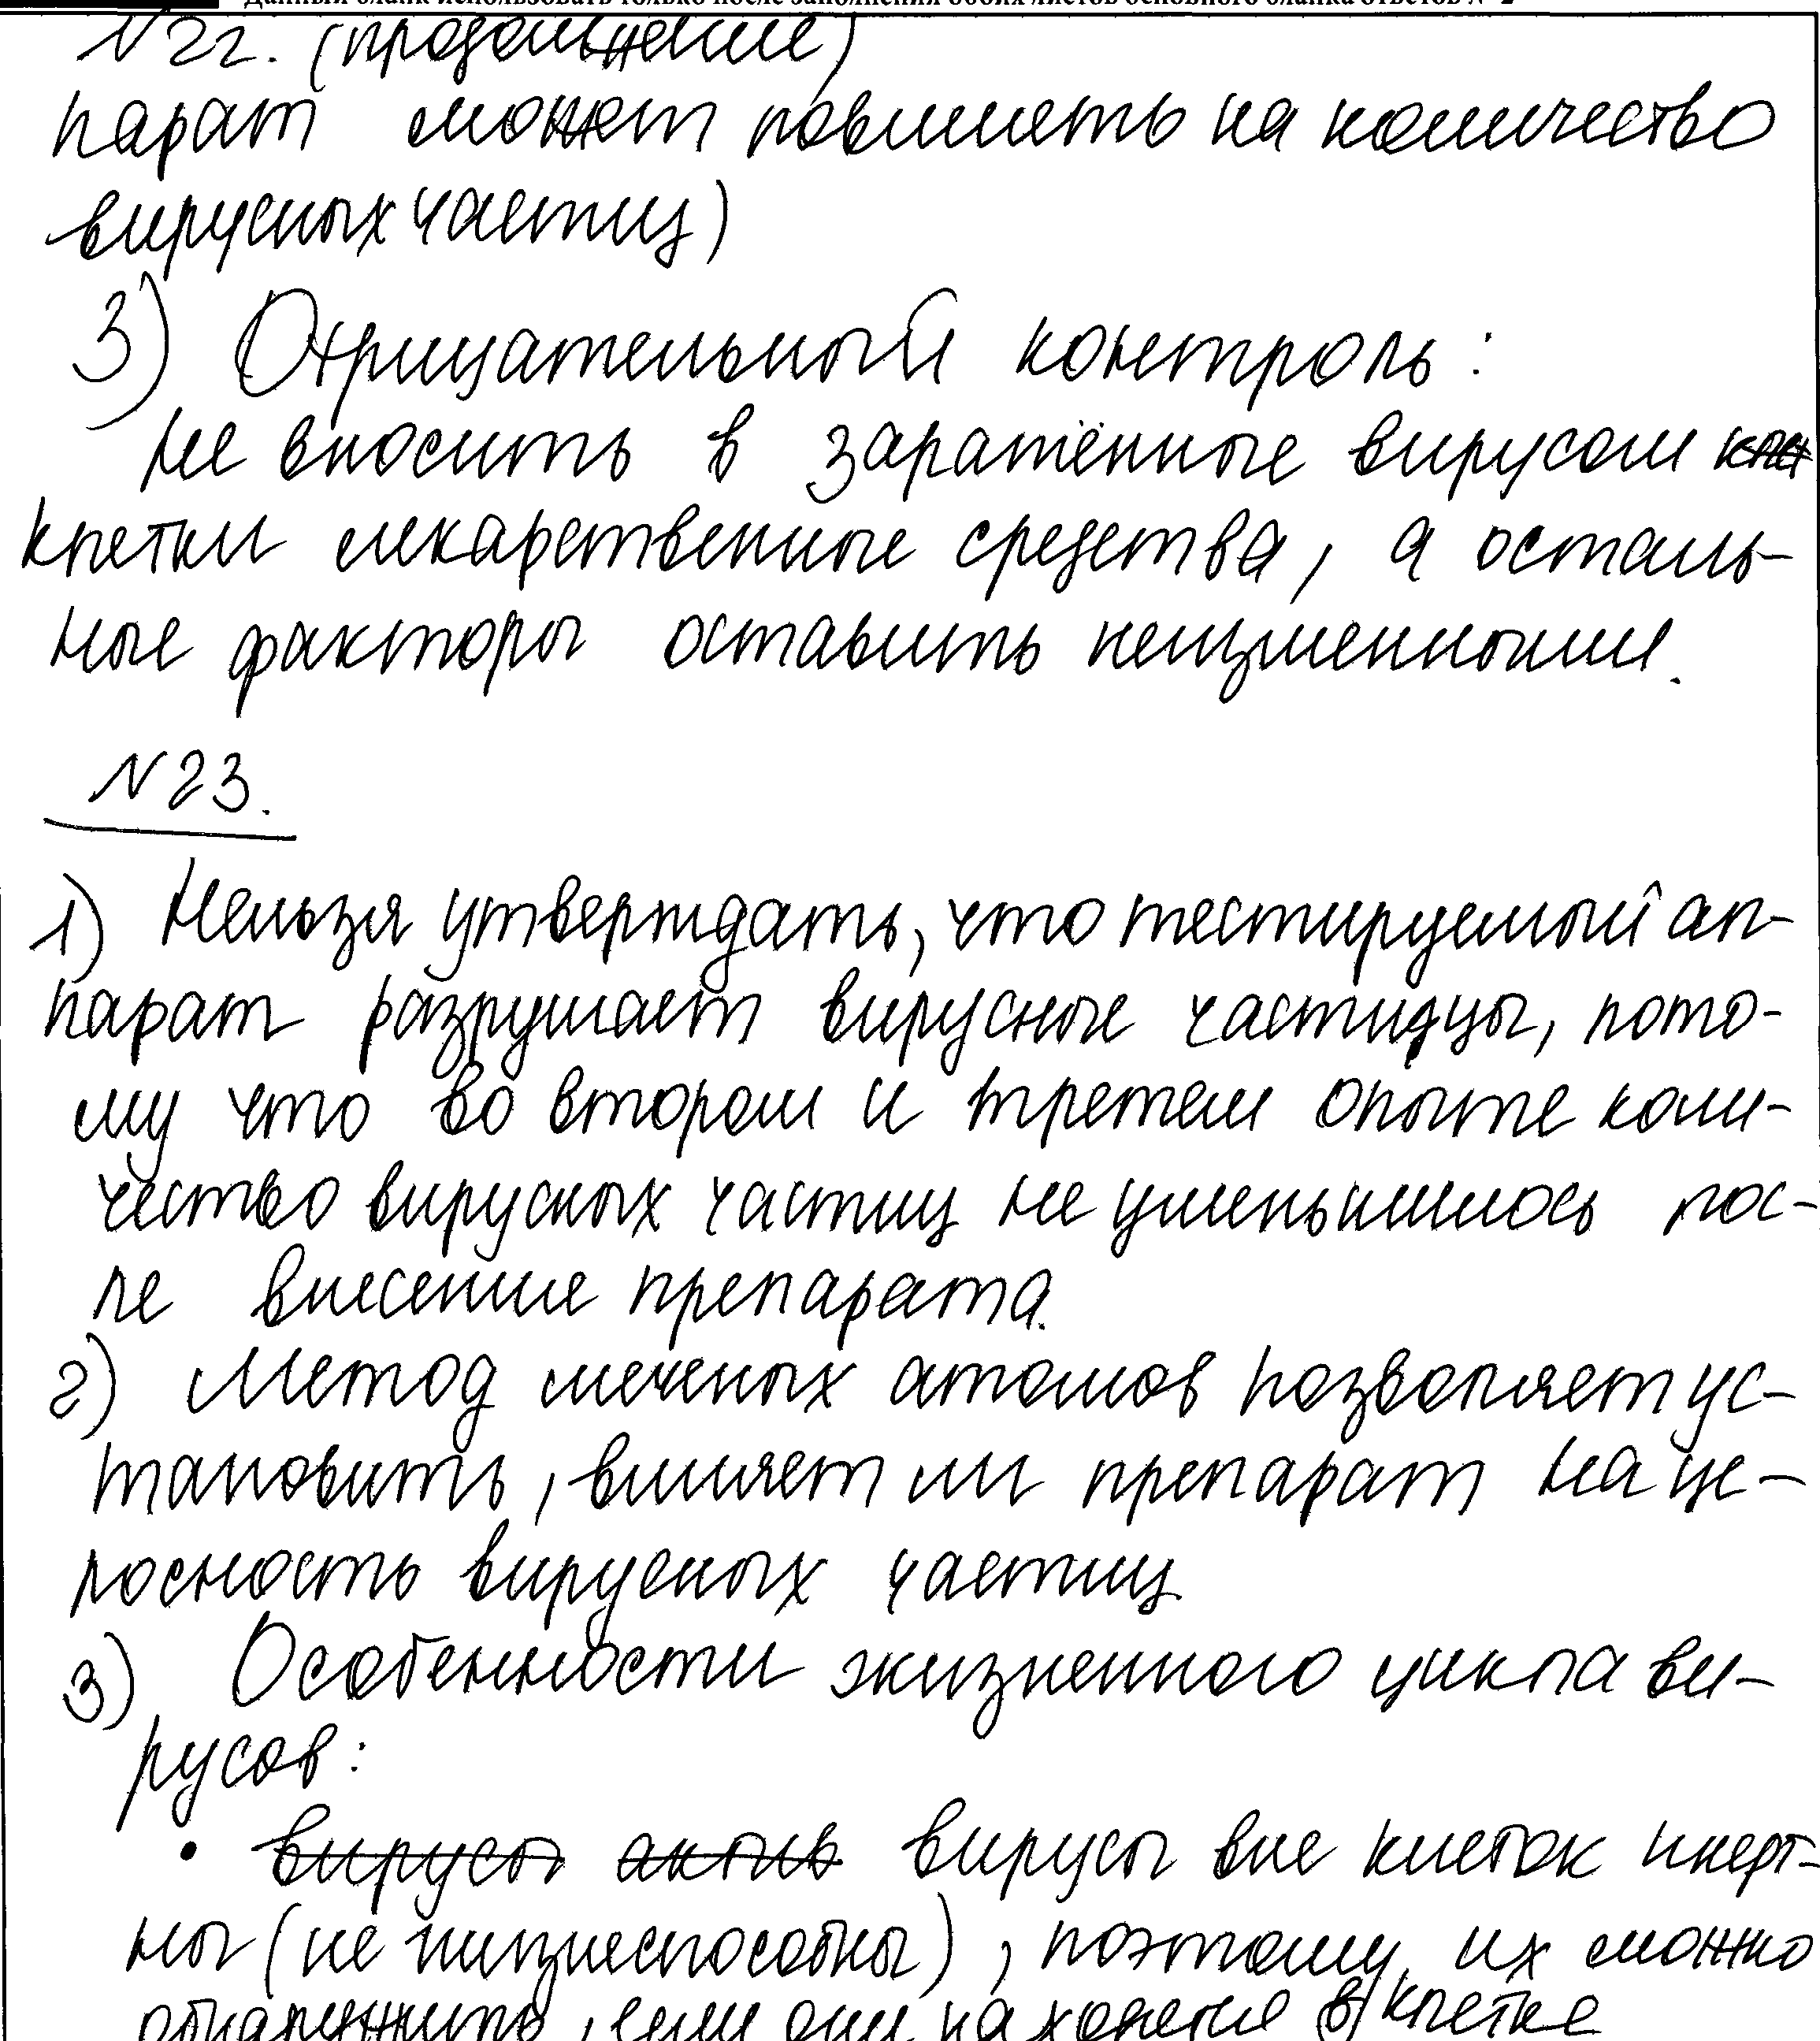 Данный бланк использовать только после заполнения обоих листов основного бланка ответов № 2
N 22. (продолжение)
парат может повлиять на количество
вирусных частиц)
3) Отрицательный контроль:
не вносить в заражённые вирусом кле
клетки лекарственные средства, а осталь-
ные факторы оставить неизменными.
N 23.
1) Нельзя утверждать, что тестируемый ап-
парат разрушает вирусные частицы, пото-
му что во втором и третем опыте коли-
чество вирусных частиц не уменьшилось пос-
ле внесение препарата.
2) Метод меченых атомов позволяет ус-
тановить, влияет ли препарат на це-
лосность вирусных частиц
3) Особенности жизненного цикла ви-
русов:
• вирусы актив вирусы вне клеток инерт-
ны (не жизнеспособны), поэтому их можно
обнаружить, если они находятся в клетке